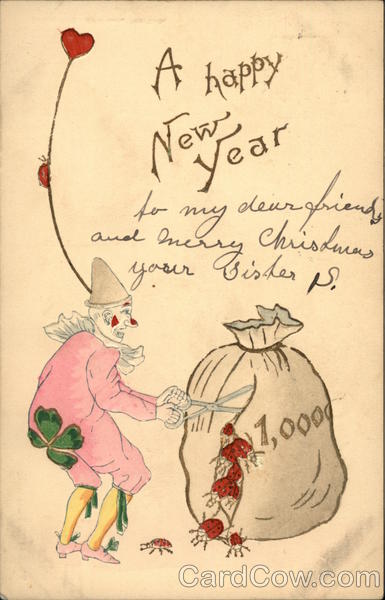 A happy
New Year
to my dear friends
and merry Christmas
your Sister S.
1,000
CardCow.com